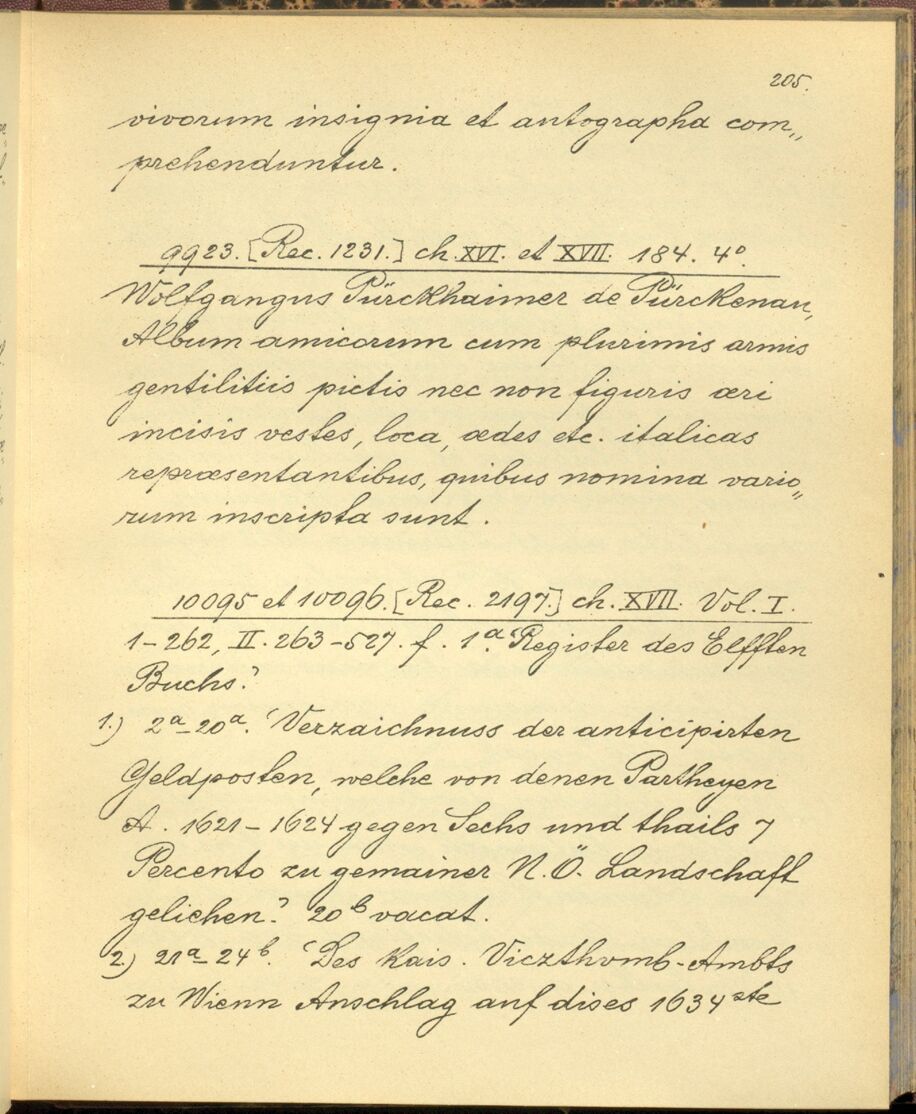 205.
vivorum insignia et autographa com„
prehenduntur.
9923. [Rec. 1231.] ch. XVI. et XVII. 184. 4°.
Wolfgangus Pürckhaimer de Pürckenau,
Album amicorum cum plurimis armis
gentilitiis pictis nec non figuris æri
incisis vestes, loca, ædes etc. italicas
repræsentantibus, quibus nomina vario„
rum inscripta sunt.
10095 et 10096. [Rec. 2197.] ch. XVII. Vol. I.
1-262, II. 263-527. f. 1ª. 'Register des Elfften
Buchs.'
1.) 2ª-20ª. 'Verzaichnuss der anticipirten
Geldposten, welche von denen Partheyen
A. 1621-1624 gegen Sechs und thails 7
Percento zu gemainer N.Ö. Landschaft
gelichen.' 20ᵇ vacat.
2.) 21ª-24ᵇ. 'Des Kais. Viczthomb-Ambts
zu Wienn Anschlag auf dises 1634ste